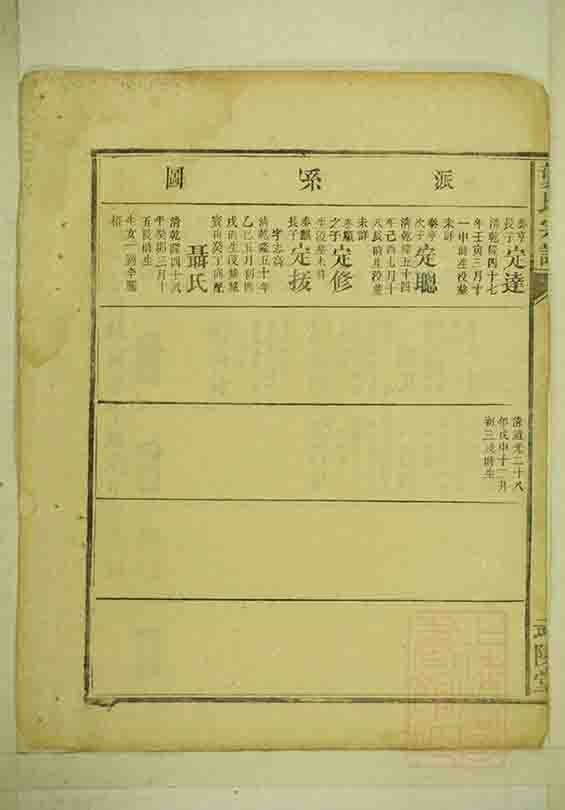 圖系派
泰亨
長子
定達
清乾隆四十七
年壬寅三月十
一申時生歿葬
未詳
泰亨
次子
定聰
清乾隆五十四
年己酉七月十
八辰時生歿葬
未詳
之子
定修
生歿葬未詳
泰麒
長子
定援
字志高
清乾隆五十年
乙巳五月初四
戌時生歿葬
寅山癸丁向配
聶氏
清乾隆四十八
年癸卯三月十
五辰時生
生女一適李
清道光二十八
年戊申十一月
初三戌時生
氏宗譜
武陵堂